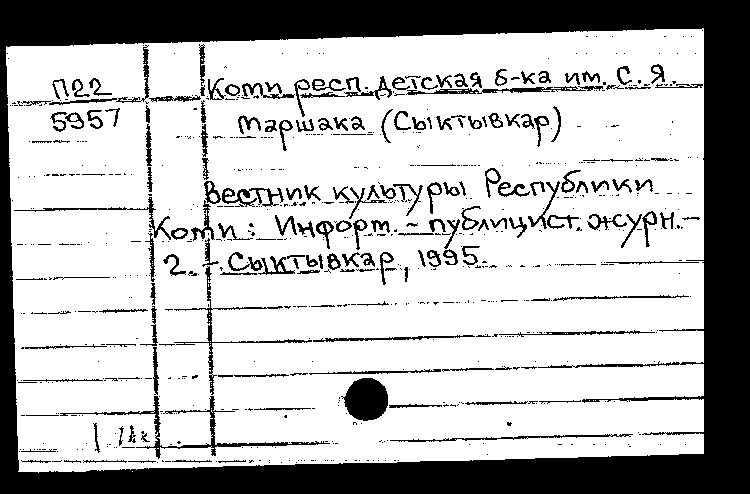 П22 Коми респ. детская б-ка им. С. Я.
5957 Маршака (Сыктывкар)
Вестник культуры Республики
Коми: Информ.-публицист. журн.-
2. - Сыктывкар, 1995.